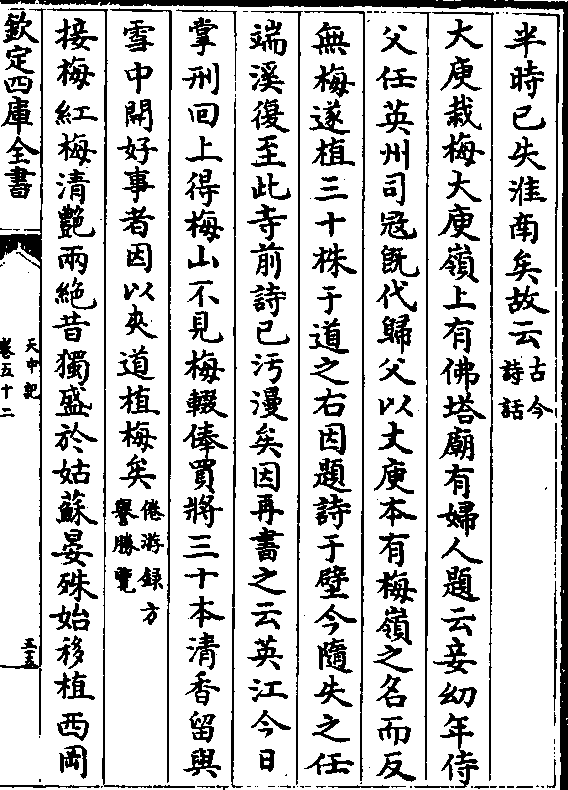 半時已失淮南矣故云古今
詩話
大庾栽梅大庾嶺上有佛塔廟有婦人題云妾幼年侍
父任英州司冦既代歸父以丈庾本有梅嶺之名而反
無梅遂植三十株于道之右因題詩于壁今隨失之任
端溪復至此寺前詩已汚漫矣因再書之云英江今日
掌刑回上得梅山不見梅輟俸買將三十本清香留與
雪中開好事者因以夾道植梅矣倦游録方
譽勝覽
接梅紅梅清艶兩絶昔獨盛於姑蘇晏殊始移植西岡
欽定四庫全書
天中記
卷五十二
三五